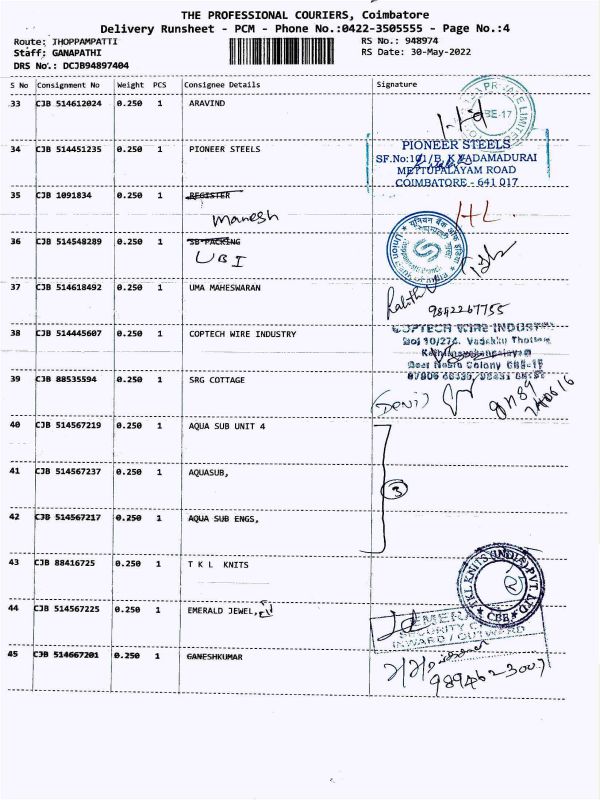 THE PROFESSIONAL COURIERS, Coimbatore
Delivery Runsheet - PCM - Phone No.:0422-3505555 - Page No.:4
Route: JHOPPAMPATTI RS No.: 948974
Staff: GANAPATHI RS Date: 30-May-2022
DRS No.: DCJB94897404
S No Consignment No Weight PCS Consignee Details Signature
33 CJB 514612024 0.250 1 ARAVIND
34 CJB 514451235 1 0.250 PIONEER STEELS
PIONEER STEELS
SF.No:101/B, K.VADAMADURAI
METTUPALAYAM ROAD
COIMBATORE - 641 017
35 CJB 1091834 0.250 1 REGISTER
Manesh
36 CJB 514548289 0.250 1 SB-PACKING
UBI
यूनियन बैंक ऑफ इंडिया
Union
37 CJB 514618492 0.250 1 UMA MAHESWARAN
9842267755
38 CJB 514445607 0.250 1 COPTECH WIRE INDUSTRY
COPTECH WIRE INDUSTRY
39 CJB 88535594 0.250 1 SRG COTTAGE
40 CJB 514567219 0.250 1 AQUA SUB UNIT 4
41 CJB 514567237 0.250 1 AQUASUB,
3
42 CJB 514567217 0.250 1 AQUA SUB ENGS,
43 CJB 88416725 0.250 1 T K L KNITS
TKL KNITS (INDIA) PVT LTD
CBE
44 CJB 514567225 0.250 1 EMERALD JEWEL,
EMERA
INWARD / OUTWARD
45 CJB 514667201 0.250 1 GANESHKUMAR
9894623007